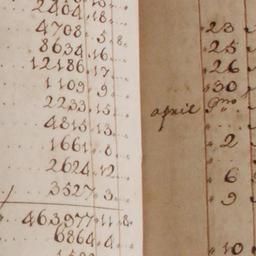 2404.18.
4708.5.8.
8634.16.
12186.17.
1109.9.
2233.15.
4815.13.
1661.8.
2624.12.
3527.3.
463977.11.8
6864.4.
23
25
26
30
april 9mo
2
6
9
10